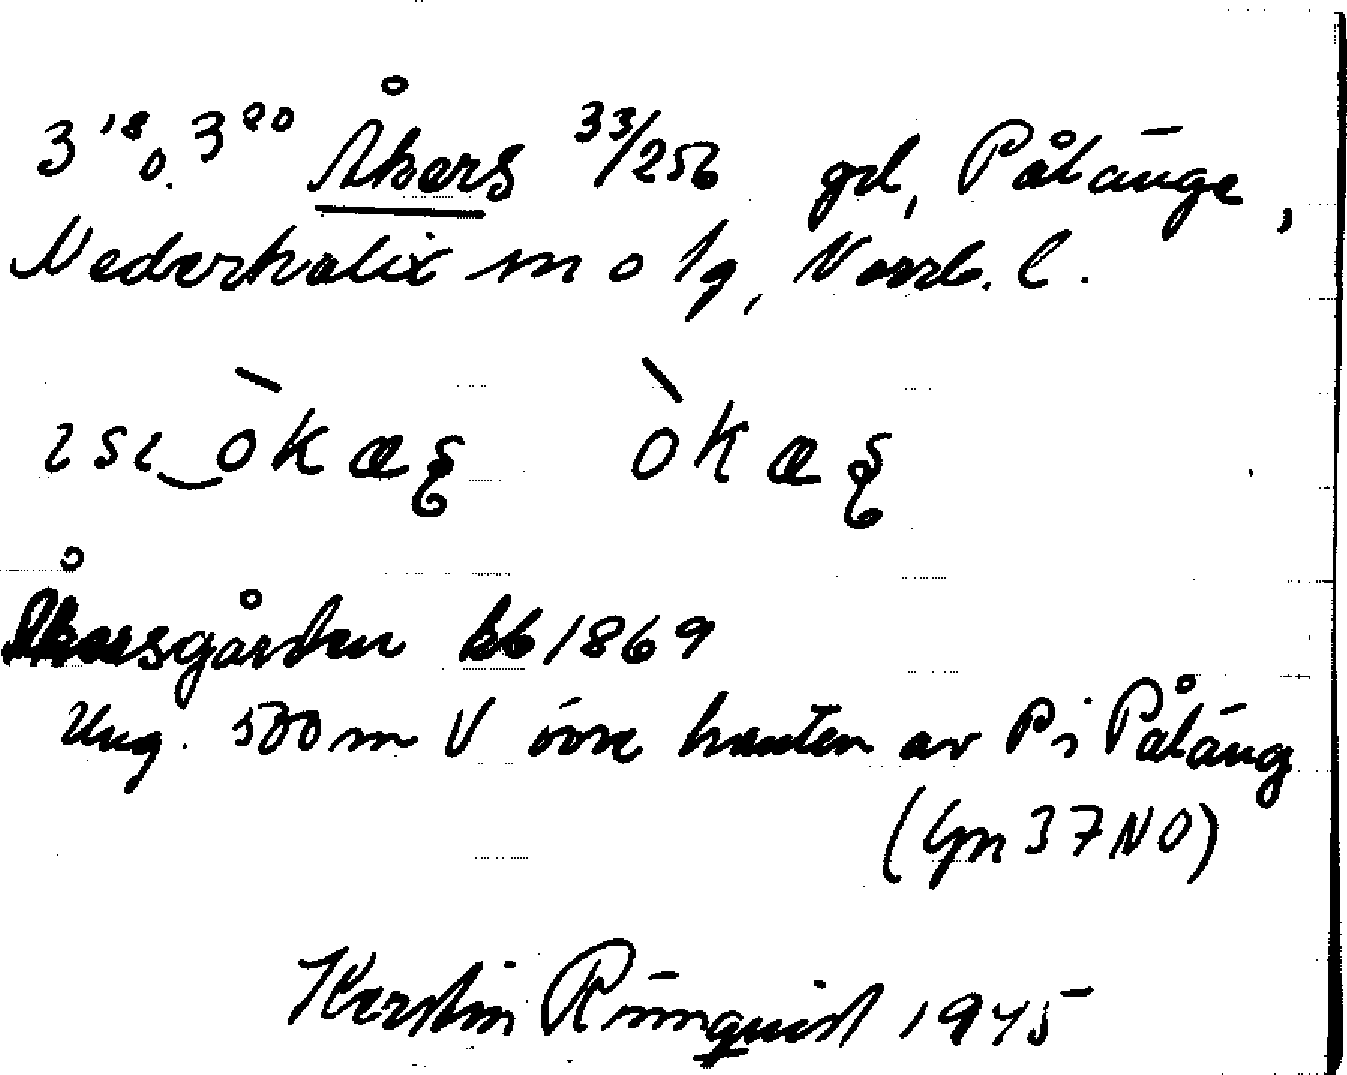 3¹⁸ o. 3²⁰ Åkers 33/256 gd, Pålänge,
Nederkalix sn o lg, Norrb. l.
ısı‿òkæʂ òkæʂ
Åkersgården kb 1869
Ung. 500 m V övre kanten av P i Påläng
(Gpn 37 NO)
Kerstin Rönnquist 1945